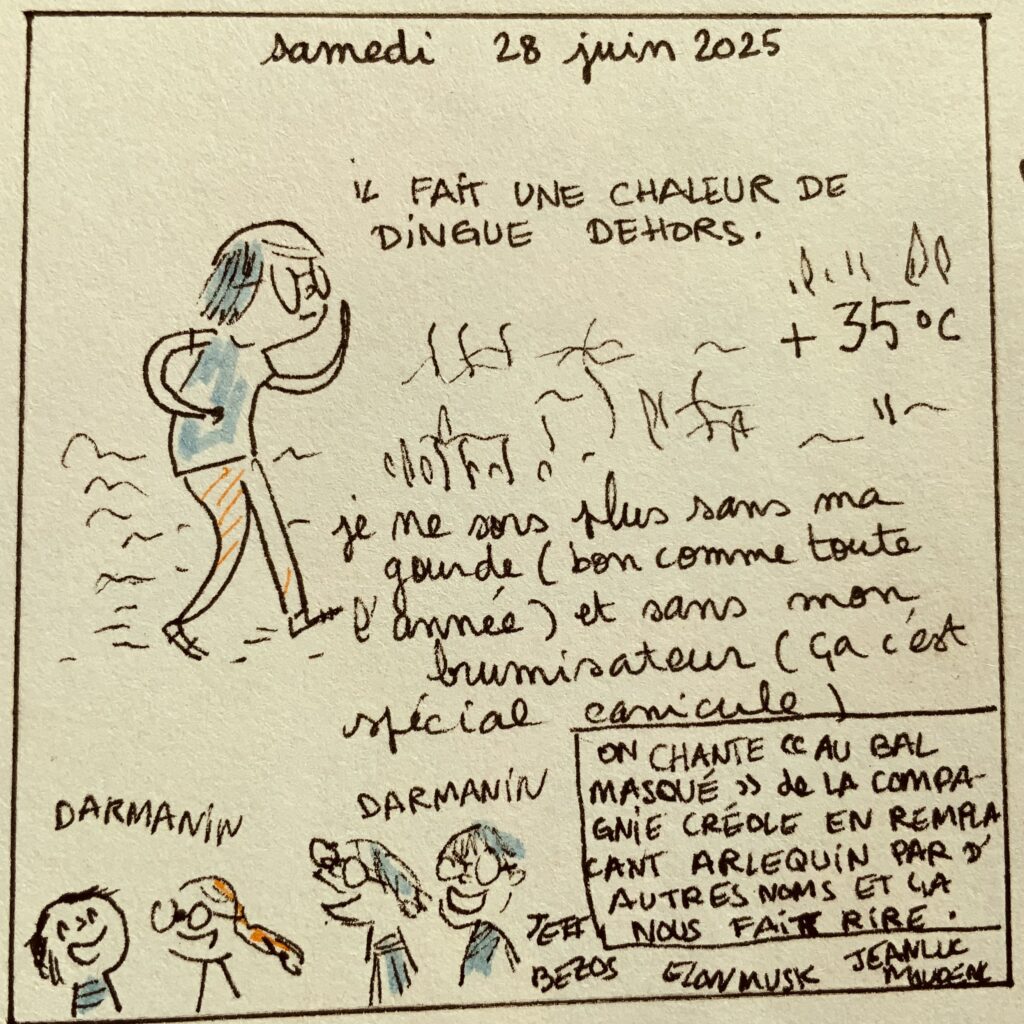 samedi 28 juin 2025
IL FAIT UNE CHALEUR DE
DINGUE DEHORS.
+ 35°C
je ne sors plus sans ma
gourde (bon comme toute
l'année) et sans mon
brumisateur (ça c'est
spécial canicule)
ON CHANTE « AU BAL
MASQUÉ » de LA COMPA-
GNIE CRÉOLE EN REMPLA
ÇANT ARLEQUIN PAR D'
AUTRES NOMS ET ÇA
NOUS FAIT RIRE.
DARMANIN
DARMANIN
JEFF
BEZOS
ELON MUSK
JEAN LUC
MOUDENC